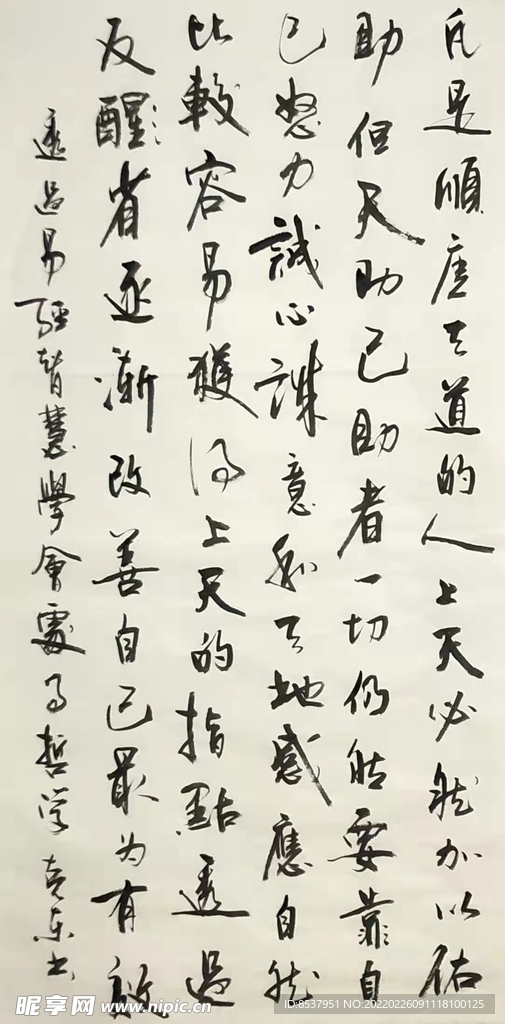 凡是順應天道的人上天必然加以佑
助但天助己助者一切仍然要靠自
己努力誠心誠意和天地感應自然
比較容易獲得上天的指點透過
反醒省逐漸改善自己最為有效
透過易經智慧學會處事哲學 東書
昵享网 www.nipic.cn
ID:8537951 NO:20220226091118100125